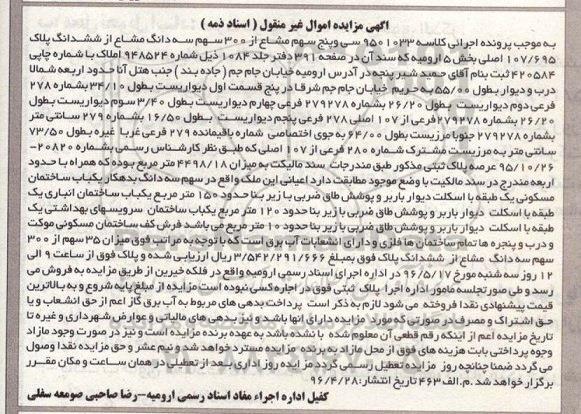 آگهی مزایده اموال غیر منقول ( اسناد ذمه )
به موجب پرونده اجرائی کلاسه ۹۵۰۱۰۳۳ سی وپنج سهم مشاع از ۳۰۰ سهم سه دانگ مشاع از ششدانگ پلاک
۱۰۷/۶۹۵ اصلی بخش ۵ ارومیه که سند آن در صفحه ۳۹۱ دفتر جلد ۱۰۸۴ ذیل شماره ۱۹۴۸۵۲۴ املاک با شماره چاپی
۴۲۰۵۸۴ ثبت بنام آقای حمید شیر پنجه در آدرس ارومیه خیابان جام جم (جاده بند) جنب هتل آنا حدود اربعه شمالا
درب و دیوار بطول ۵۵/۰۰ به حریم خیابان جام جم شرقا در پنج قسمت اول دیواریست بطول ۳۴/۱۰ بشماره ۲۷۸
فرعی دوم دیواریست بطول ۲۶/۲۰ بشماره ۲۷۹۲۷۸ فرعی چهارم دیواریست بطول ۳/۴۰ سوم دیواریست بطول
۲۶/۲۰ بشماره ۲۷۹۲۷۸ فرعی از ۱۰۷ اصلی ۲۷۸ فرعی پنجم دیواریست بطول ۱۶/۵۰ بشماره ۲۷۹ سانتی متر
بشماره ۲۷۹۲۷۸ جنوبا مرزیست بطول ۶۴/۰۰ به جوی اختصاصی شماره باقیمانده ۲۷۹ فرعی غربا غیره بطول ۷۳/۵۰
سانتی متر به مرزیست مشترک شماره ۲۸۰ فرعی از ۱۰۷ اصلی که طبق نظر کارشناس رسمی بشماره ۲۰۸۲۰-
۹۵/۱۰/۲۶ عرصه پلاک ثبتی مذکور طبق مندرجات سند مالکیت به میزان ۴۴۹۸/۱۸ متر مربع بوده که همراه با حدود
اربعه مندرج در سند مالکیت با وضع موجود مطابقت دارد اعیانی این ملک واقع در سهم سه دانگ بدهکار یکباب ساختمان
مسکونی یک طبقه با اسکلت دیوار باربر و پوشش طاق ضربی با زیر بنا حدود ۱۵۰ متر مربع یکباب ساختمان انباری یک
طبقه با اسکلت دیوار باربر و پوشش طاق ضربی با زیر بنا حدود ۱۲۰ متر مربع یکباب ساختمان سرویسهای بهداشتی یک
طبقه با اسکلت دیوار باربر و پوشش طاق ضربی با زیر بنا حدود ۱۰ متر مربع می باشد فرش کف ساختمان مسکونی موکت
و درب و پنجره ها تمام ساختمان ها فلزی و دارای انشعابات آب برق است که با توجه به مراتب فوق میزان ۳۵ سهم از ۳۰۰
سهم سه دانگ مشاع از ششدانگ پلاک فوق بمبلغ ۳/۵۴۲/۲۹۱/۶۶۶ ریال ارزیابی شده و پلاک فوق از ساعت ۹ الی
۱۲ روز سه شنبه مورخ ۹۶/۵/۱۷ در اداره اجرای اسناد رسمی ارومیه واقع در فلکه خیرین از طریق مزایده به فروش می
رسد و طی صورتجلسه مامور اداره اجرا پلاک ثبتی فوق در اجاره کسی نبوده است مزایده از مبلغ پایه شروع و به بالاترین
قیمت پیشنهادی نقدا فروخته می شود لازم به ذکر است پرداخت بدهی های مربوط به آب برق گاز اعم از حق انشعاب و یا
حق اشتراک و مصرف در صورتی که مورد مزایده دارای آنها باشد و نیز بدهی های مالیاتی و عوارض شهرداری و غیره تا
تاریخ مزایده اعم از اینکه رقم قطعی آن معلوم شده یا نشده باشد به عهده برنده مزایده است و نیز در صورت وجود مازاد
وجوه پرداختی بابت هزینه های فوق از محل مازاد به برنده مزایده مسترد خواهد شد و نیم عشر و حق مزایده نقدا وصول
می گردد ضمنا چنانچه روز مزایده تعطیل رسمی گردد مزایده روز اداری بعد از تعطیلی در همان ساعت و مکان مقرر
برگزار خواهد شد .م.الف ۴۶۳ تاریخ انتشار: ۹۶/۴/۲۸
کفیل اداره اجراء مفاد اسناد رسمی ارومیه-رضا صاحبی صومعه سفلی